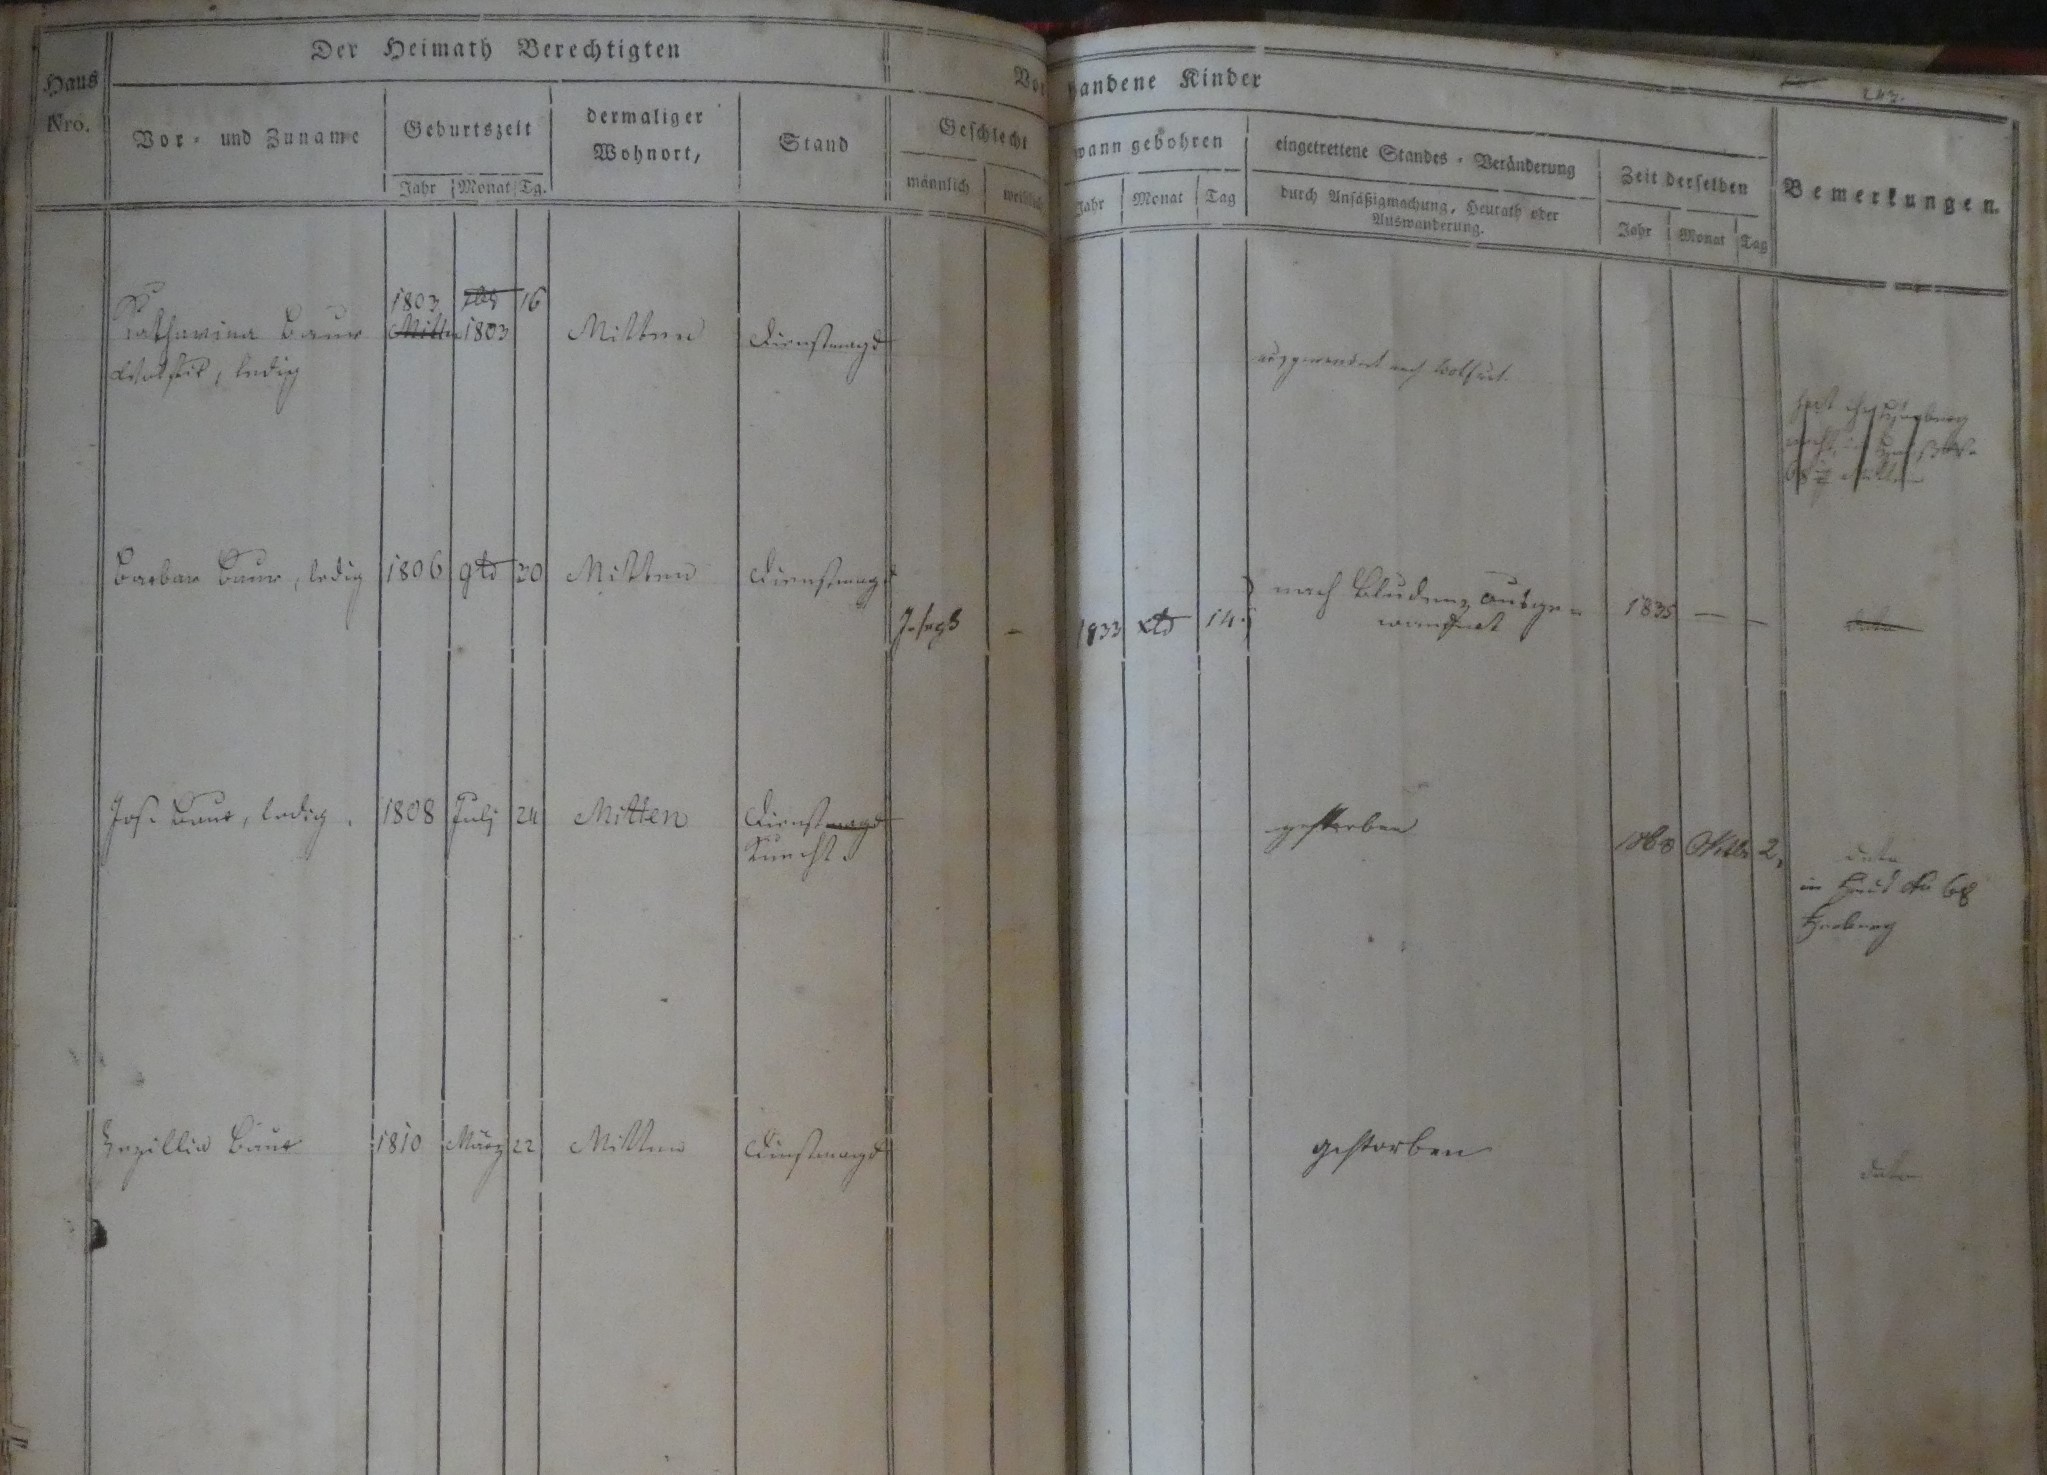 Der Heimath Berechtigten
Haus
Nro.
Vor- und Zuname
Geburtszeit
Jahr Monat Tg.
dermaliger
Wohnort,
Stand
Vorhandene Kinder
Geschlecht
männlich weiblich
wann gebohren
Jahr Monat Tag
eingetrettene Standes-Veränderung
durch Ansäßigmachung, Heurath oder
Auswanderung.
Zeit derselben
Jahr Monat Tag
Bemerkungen.
1803 16
Katharina Baur 1803 Mitten Dienstmagd
ledig
ausgewandert nach Wolfurt
Barbar Baur, ledig 1806 9td 20 Mitten Dienstmagd
Joseph – 1833 xtd 14. nach Bludenz ausge-
wandert 1835 — —
Jos. Baur, ledig. 1808 Julj 24 Mitten Dienstmagd
Knecht.
gestorben 2.
in Haus No 68
Zezillia Baur 1810 März 22 Mitten Dienstmagd
gestorben